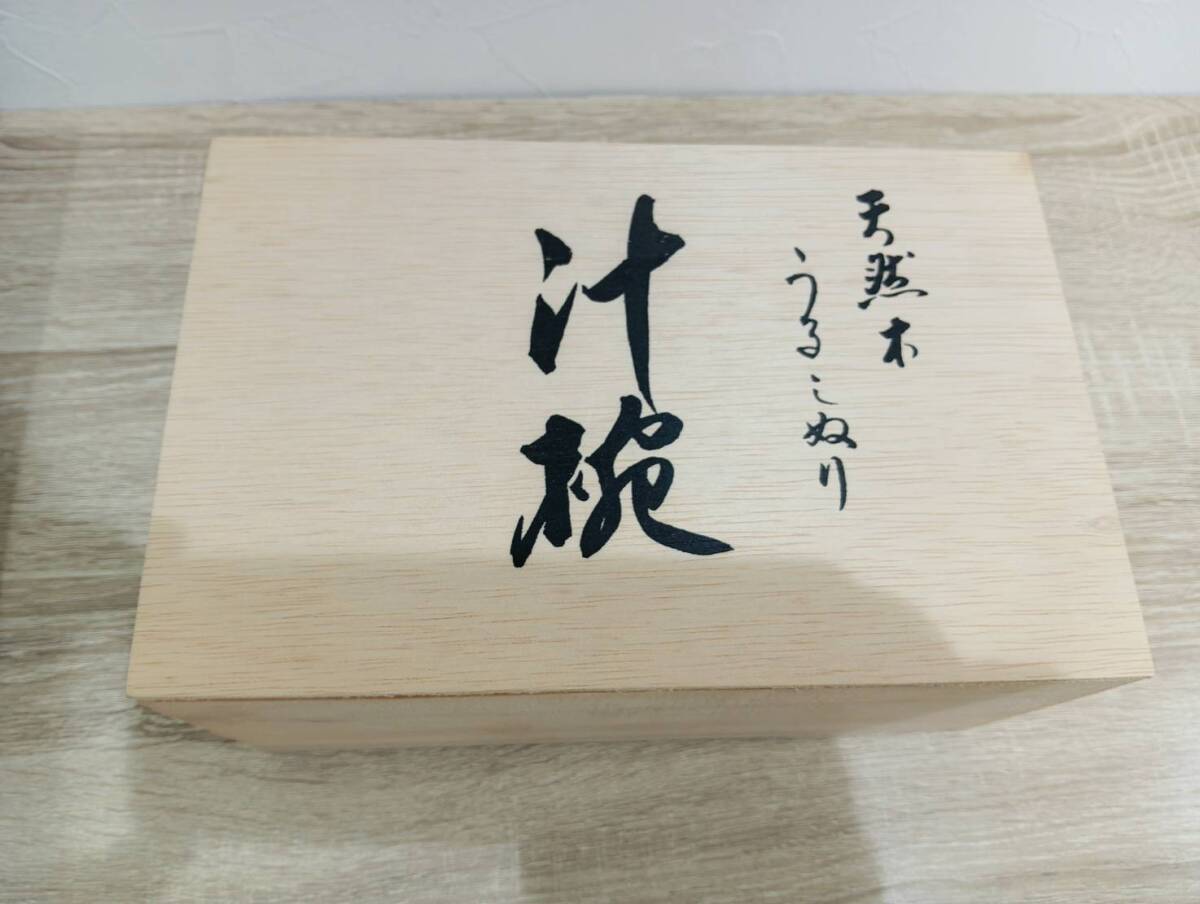 天然木
うるしぬり
汁椀